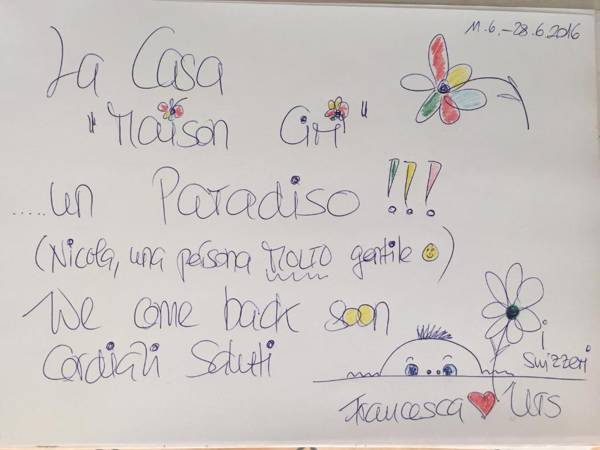 11.6.-28.6.2016
La Casa
"Maison Cirì"
.....un Paradiso !!!
(Nicola, una persona MOLTO gentile )
We come back soon
Cordiali Saluti
i
Svizzeri
Francesca Urs